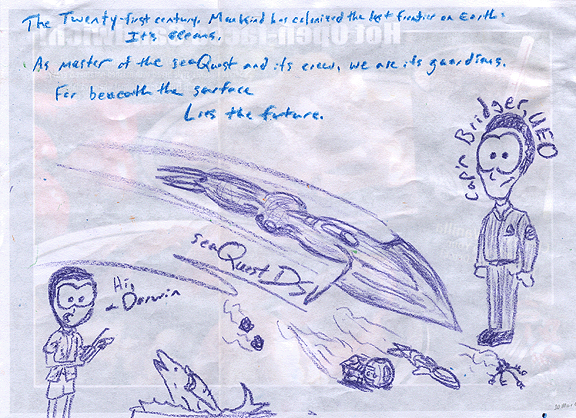 The Twenty-first century. Mankind has colonized the last frontier on Earth:
It's oceans.
As master of the seaQuest and its crew, we are its guardians.
For beneath the surface
Lies the future.
Cap'n Bridger, UEO
seaQuest DSV
Hi,
Darwin